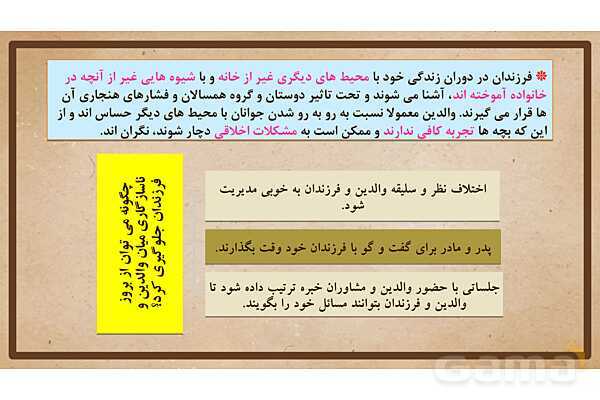 ❊ فرزندان در دوران زندگی خود با محیط های دیگری غیر از خانه و با شیوه هایی غیر از آنچه در
خانواده آموخته اند، آشنا می شوند و تحت تاثیر دوستان و گروه همسالان و فشارهای هنجاری آن
ها قرار می گیرند. والدین معمولا نسبت به رو به رو شدن جوانان با محیط های دیگر حساس اند و از
این که بچه ها تجربه کافی ندارند و ممکن است به مشکلات اخلاقی دچار شوند، نگران اند.
چگونه می توان از بروز
ناسازگاری میان والدین و
فرزندان جلوگیری کرد؟
اختلاف نظر و سلیقه والدین و فرزندان به خوبی مدیریت
شود.
پدر و مادر برای گفت و گو با فرزندان خود وقت بگذارند.
جلساتی با حضور والدین و مشاوران خبره ترتیب داده شود تا
والدین و فرزندان بتوانند مسائل خود را بگویند.
Gama